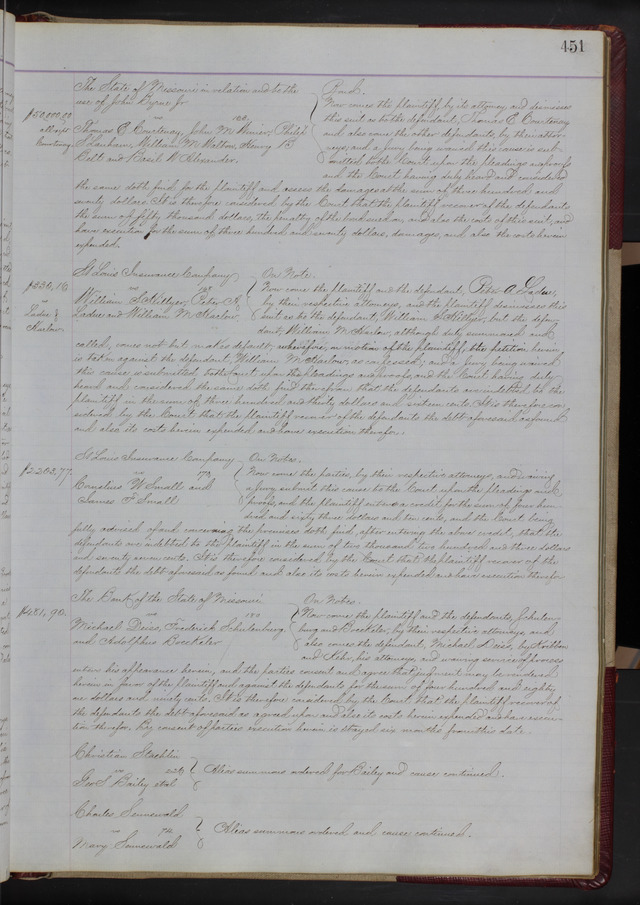 451
The State of Missouri in relation and to the
use of John Byrne Jr
$50,000.00
Thomas C Courtenay, John M Wimer, Philip
S Lanham, William M Walton, Henry B
Belt and Basil W Alexander.
Bond.
Now comes the plaintiff, by its attorney and dismisses
this suit as to the defendant, Thomas C. Courtenay
and also come the other defendants, by their attor-
neys, and a jury being waived this cause is sub-
mitted to the Court upon the pleadings and proofs
and the Court having duly heard and considered
the same doth find for the plaintiff and assess the damages at the sum of three hundred and
seventy dollars. It is therefore considered by the Court that the plaintiff recover of the defendants
the sum of fifty thousand dollars, the penalty of the bond sued on, and also the costs of this suit, and
have execution for the sum of three hundred and seventy dollars, damages, and also the costs herein
expended.
St Louis Insurance Company
$330.16
vs
Ladue &
Harlow
William S Hillyer, Peter A.
Ladue and William M Harlow
On Note.
Now come the plaintiff and the defendant, Peter A. Ladue,
by their respective attorneys, and the plaintiff dismisses this
suit as to the defendant, William S Hillyer, but the defen-
dant, William M Harlow, although duly summoned and
called, comes not but makes default; wherefore, on motion of the plaintiff, the petition herein
is taken against the defendant, William M Harlow, as confessed, and a jury being waived
this cause is submitted to the Court upon the pleadings and proofs, and the Court having duly
heard and considered the same doth find therefrom that the defendants are indebted to the
plaintiff in the sum of three hundred and thirty dollars and sixteen cents. It is therefore con-
sidered by the Court that the plaintiff recover of the defendants the debt aforesaid as found
and also its costs herein expended and have execution therefor.
St Louis Insurance Company
$2203.77
vs 170
Cornelius W Small and
James F Small
On Notes.
Now come the parties, by their respective attorneys, and waiving
a jury submit this cause to the Court upon the pleadings and
proofs, and the plaintiff enters a credit for the sum of four hun-
dred and sixty three dollars and ten cents, and the Court being
fully advised of and concerning the premises doth find, after entering the above credit, that the
defendants are indebted to the plaintiff in the sum of two thousand two hundred and three dollars
and seventy seven cents. It is therefore considered by the Court that the plaintiff recover of the
defendants the debt aforesaid as found and also its costs herein expended and have execution therefor
The Bank of the State of Missouri
$481.90.
Michael Deiss, Frederick Schulenburg
and Adolphus Boeckeler
On Notes.
Now come the plaintiff and the defendants, Schulen-
burg and Boeckeler, by their respective attorneys, and
also comes the defendant, Michael Deiss, by Krebben
and Kehr, his attorneys, and waiving service of process
enters his appearance herein, and the parties consent and agree that judgment may be rendered
herein in favor of the plaintiff and against the defendants for the sum of four hundred and eighty
one dollars and ninety cents. It is therefore considered by the Court that the plaintiff recover of
the defendants the debt aforesaid as agreed upon and also its costs herein expended and have execu-
tion therefor. By consent of parties execution herein is stayed six months from this date.
Christian Staehlin
vs
Geo S Bailey et al
Alias summons ordered for Bailey and cause continued.
Charles Sennewald
vs
Mary Sennewald
Alias summons ordered and cause continued.